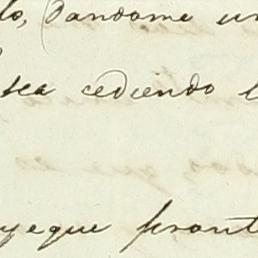 lo, dandome un
sea cediendo l
yeque front